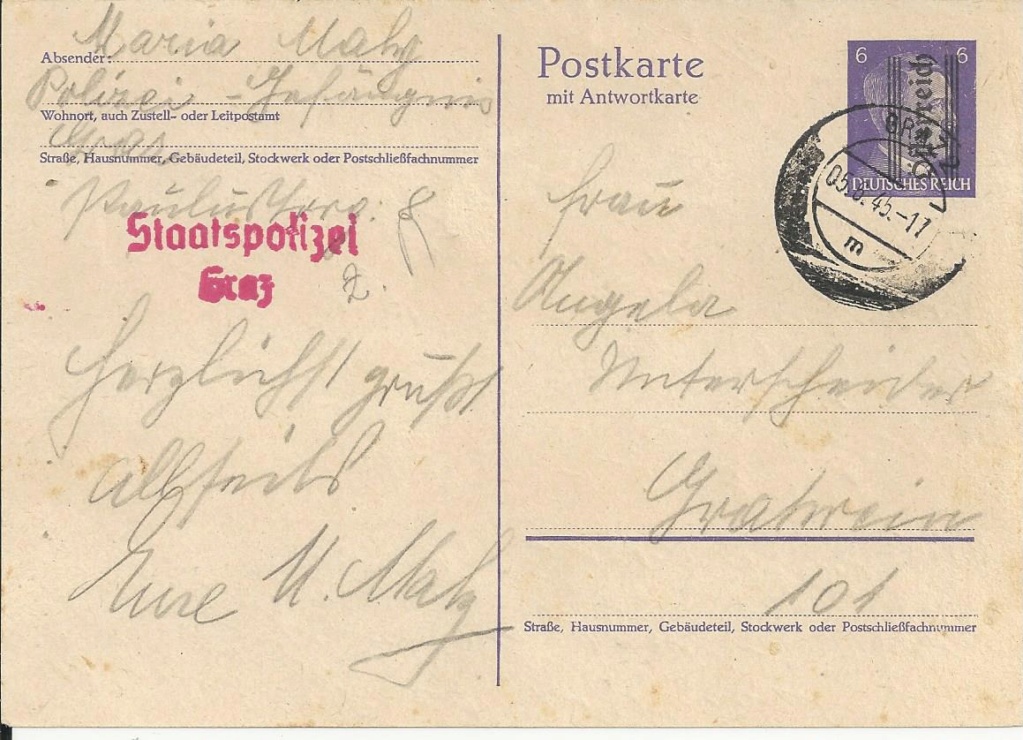 Absender: Maria Maly
Polizei-Gefängnis
Wohnort, auch Zustell- oder Leitpostamt
Graz
Straße, Hausnummer, Gebäudeteil, Stockwerk oder Postschließfachnummer
Paulustorg. 8
Staatspolizei
Graz
Herzlichst grüßt
allseits
Eure M. Maly
Postkarte
mit Antwortkarte
6 6
Österreich
DEUTSCHES REICH
GRAZ
45.-17
m
Frau
Angela
Unterscheider
Gratwein
101
Straße, Hausnummer, Gebäudeteil, Stockwerk oder Postschließfachnummer